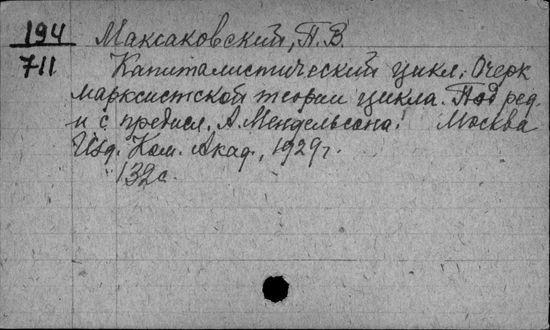 194
711
Максаковский, П.В.
Капиталистический цикл; Очерк
марксистской теории цикла. Под ред.
и с предисл. А. Мендельсона. Москва
Изд. Ком. Акад., 1929г.
132с.